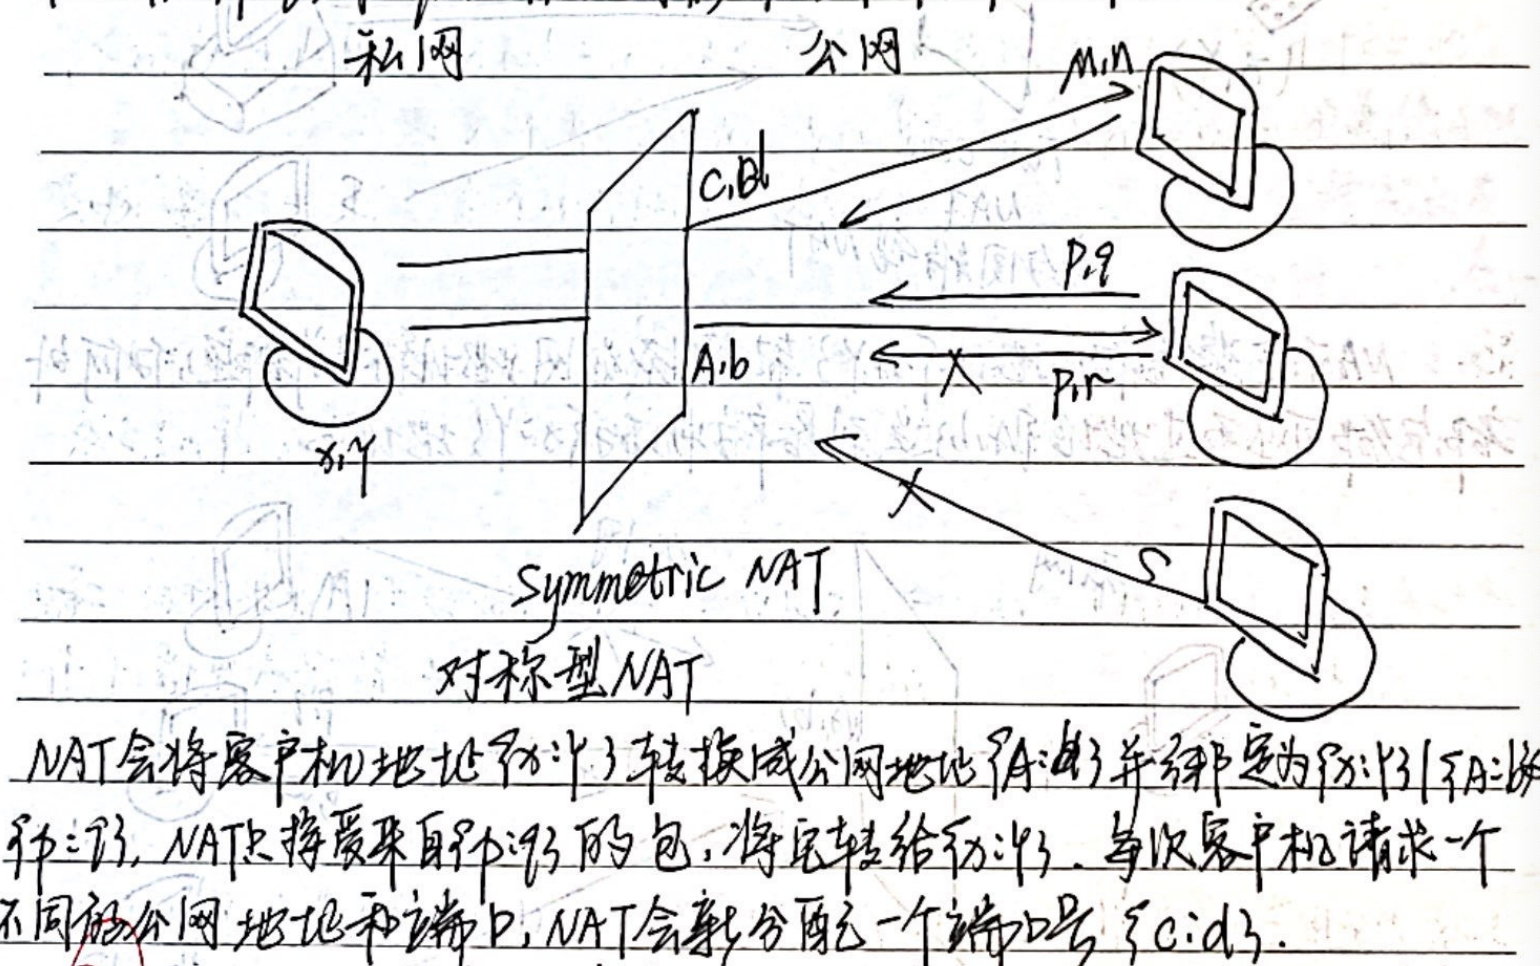 私网 公网
M,n
C,d
P,q
A,b
P,r
x,y
S
Symmetric NAT
对称型NAT
NAT会将客户机地址{x:y}转换成公网地址{A:b}并绑定为{x:y}|{A:b}
{p:q}, NAT只接受来自{p:q}的包,将它转给{x:y}. 每次客户机请求一个
不同的公网地址和端口, NAT会新分配一个端口号{c:d}.